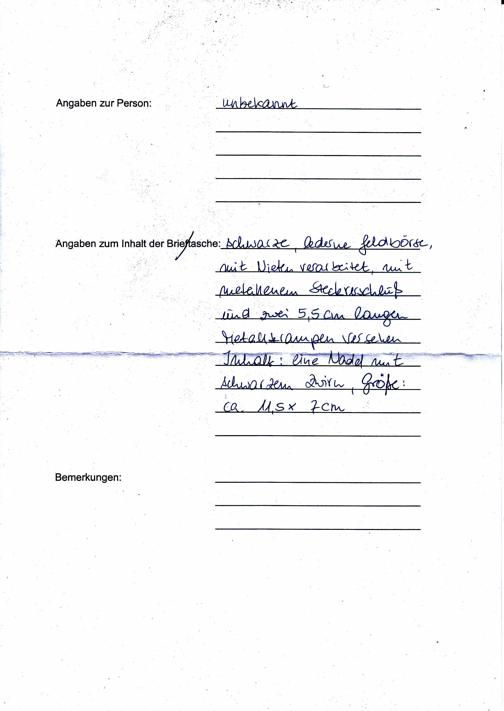 Angaben zur Person: unbekannt
Angaben zum Inhalt der Brieftasche: schwarze, lederne Geldbörse,
mit Nieten verarbeitet, mit
metallenem Steckverschluß
und zwei 5,5 cm langen
Metallkrampen versehen
Inhalt: eine Nadel mit
schwarzem Zwirn, Größe:
ca. 11,5 x 7 cm
Bemerkungen: